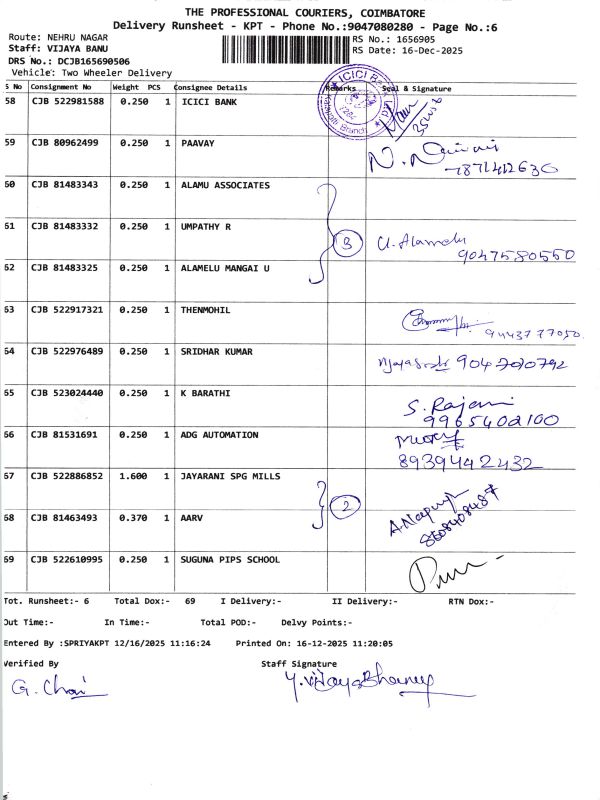 THE PROFESSIONAL COURIERS, COIMBATORE
Delivery Runsheet - KPT - Phone No.:9047080280 - Page No.:6
Route: NEHRU NAGAR RS No.: 1656905
Staff: VIJAYA BANU RS Date: 16-Dec-2025
DRS No.: DCJB165690506
Vehicle: Two Wheeler Delivery
S No Consignment No Weight PCS Consignee Details Remarks Seal & Signature
58 CJB 522981588 0.250 1 ICICI BANK
ICICI Bank Ltd.
59 CJB 80962499 0.250 1 PAAVAY
7871412630
60 CJB 81483343 0.250 1 ALAMU ASSOCIATES
61 CJB 81483332 0.250 1 UMPATHY R 3 U. Alamelu
9047580550
62 CJB 81483325 0.250 1 ALAMELU MANGAI U
63 CJB 522917321 0.250 1 THENMOHIL
9443777050
64 CJB 522976489 0.250 1 SRIDHAR KUMAR
65 CJB 523024440 0.250 1 K BARATHI S. Rajani
9965402100
66 CJB 81531691 0.250 1 ADG AUTOMATION
8939442432
67 CJB 522886852 1.600 1 JAYARANI SPG MILLS
2
68 CJB 81463493 0.370 1 AARV
8608408487
69 CJB 522610995 0.250 1 SUGUNA PIPS SCHOOL
Tot. Runsheet:- 6 Total Dox:- 69 I Delivery:- II Delivery:- RTN Dox:-
Out Time:- In Time:- Total POD:- Delvy Points:-
Entered By :SPRIYAKPT 12/16/2025 11:16:24 Printed On: 16-12-2025 11:20:05
Verified By Staff Signature